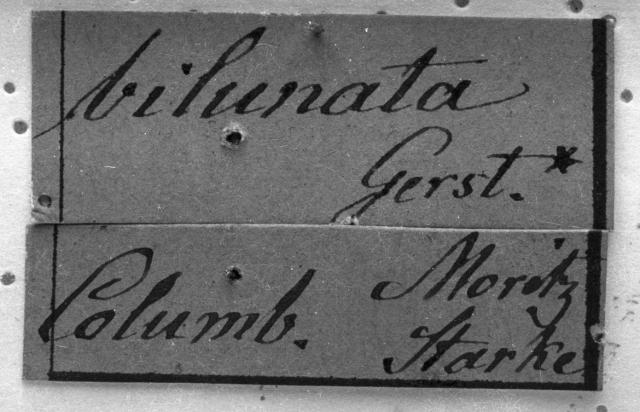 bilunata
Gerst.*
Columb. Moritz
Starke